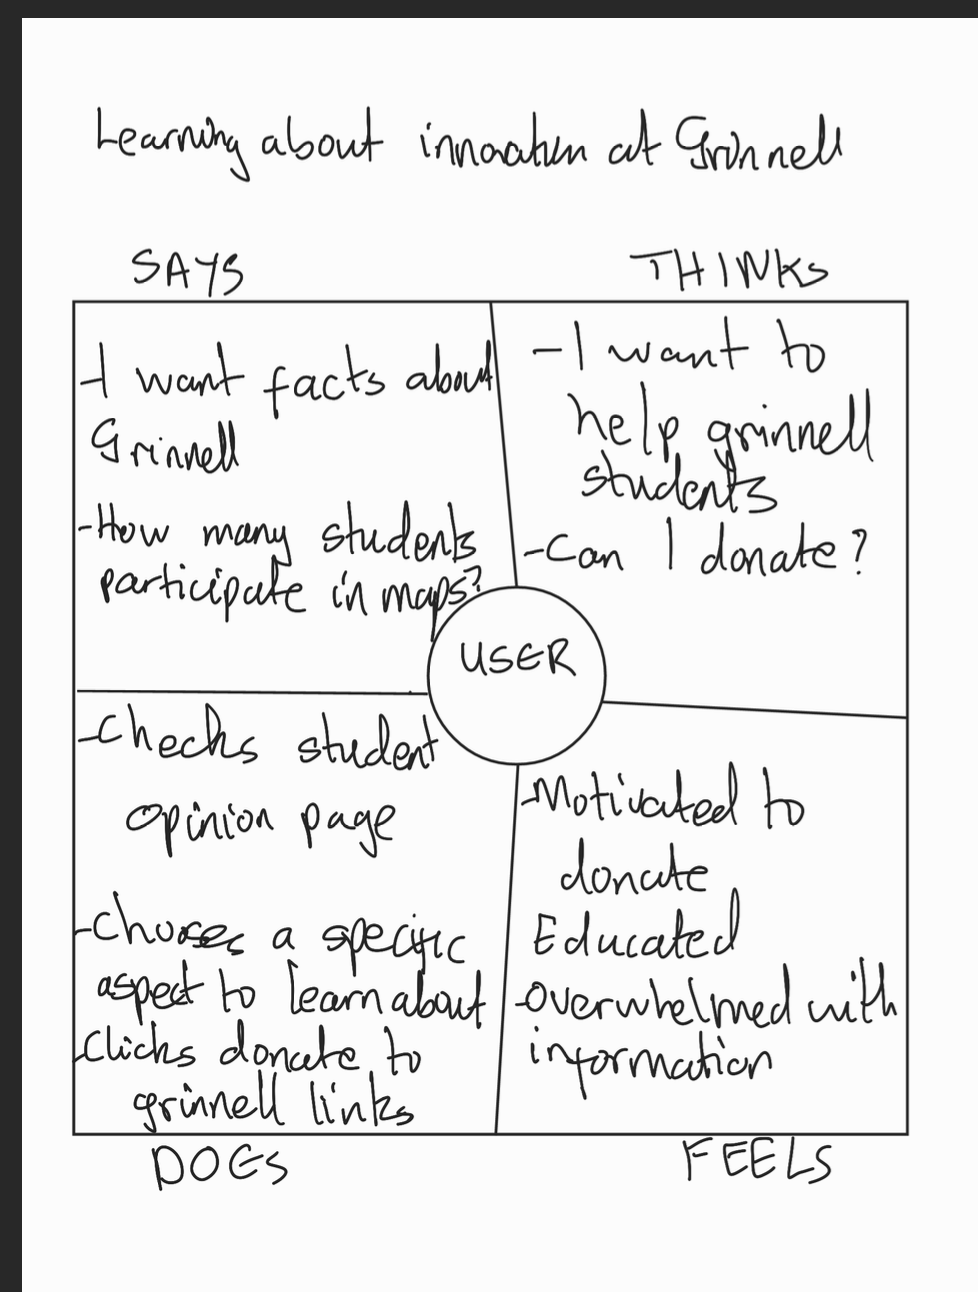 Learning about innovation at Grinnell
SAYS
THINKS
-I want facts about
Grinnell
-How many students
participate in maps?
-I want to
help grinnell
students
-Can I donate?
USER
-Checks student
opinion page
-Chooses a specific
aspect to learn about
-Clicks donate to
grinnell links
-Motivated to
donate
Educated
-Overwhelmed with
information
DOES
FEELS